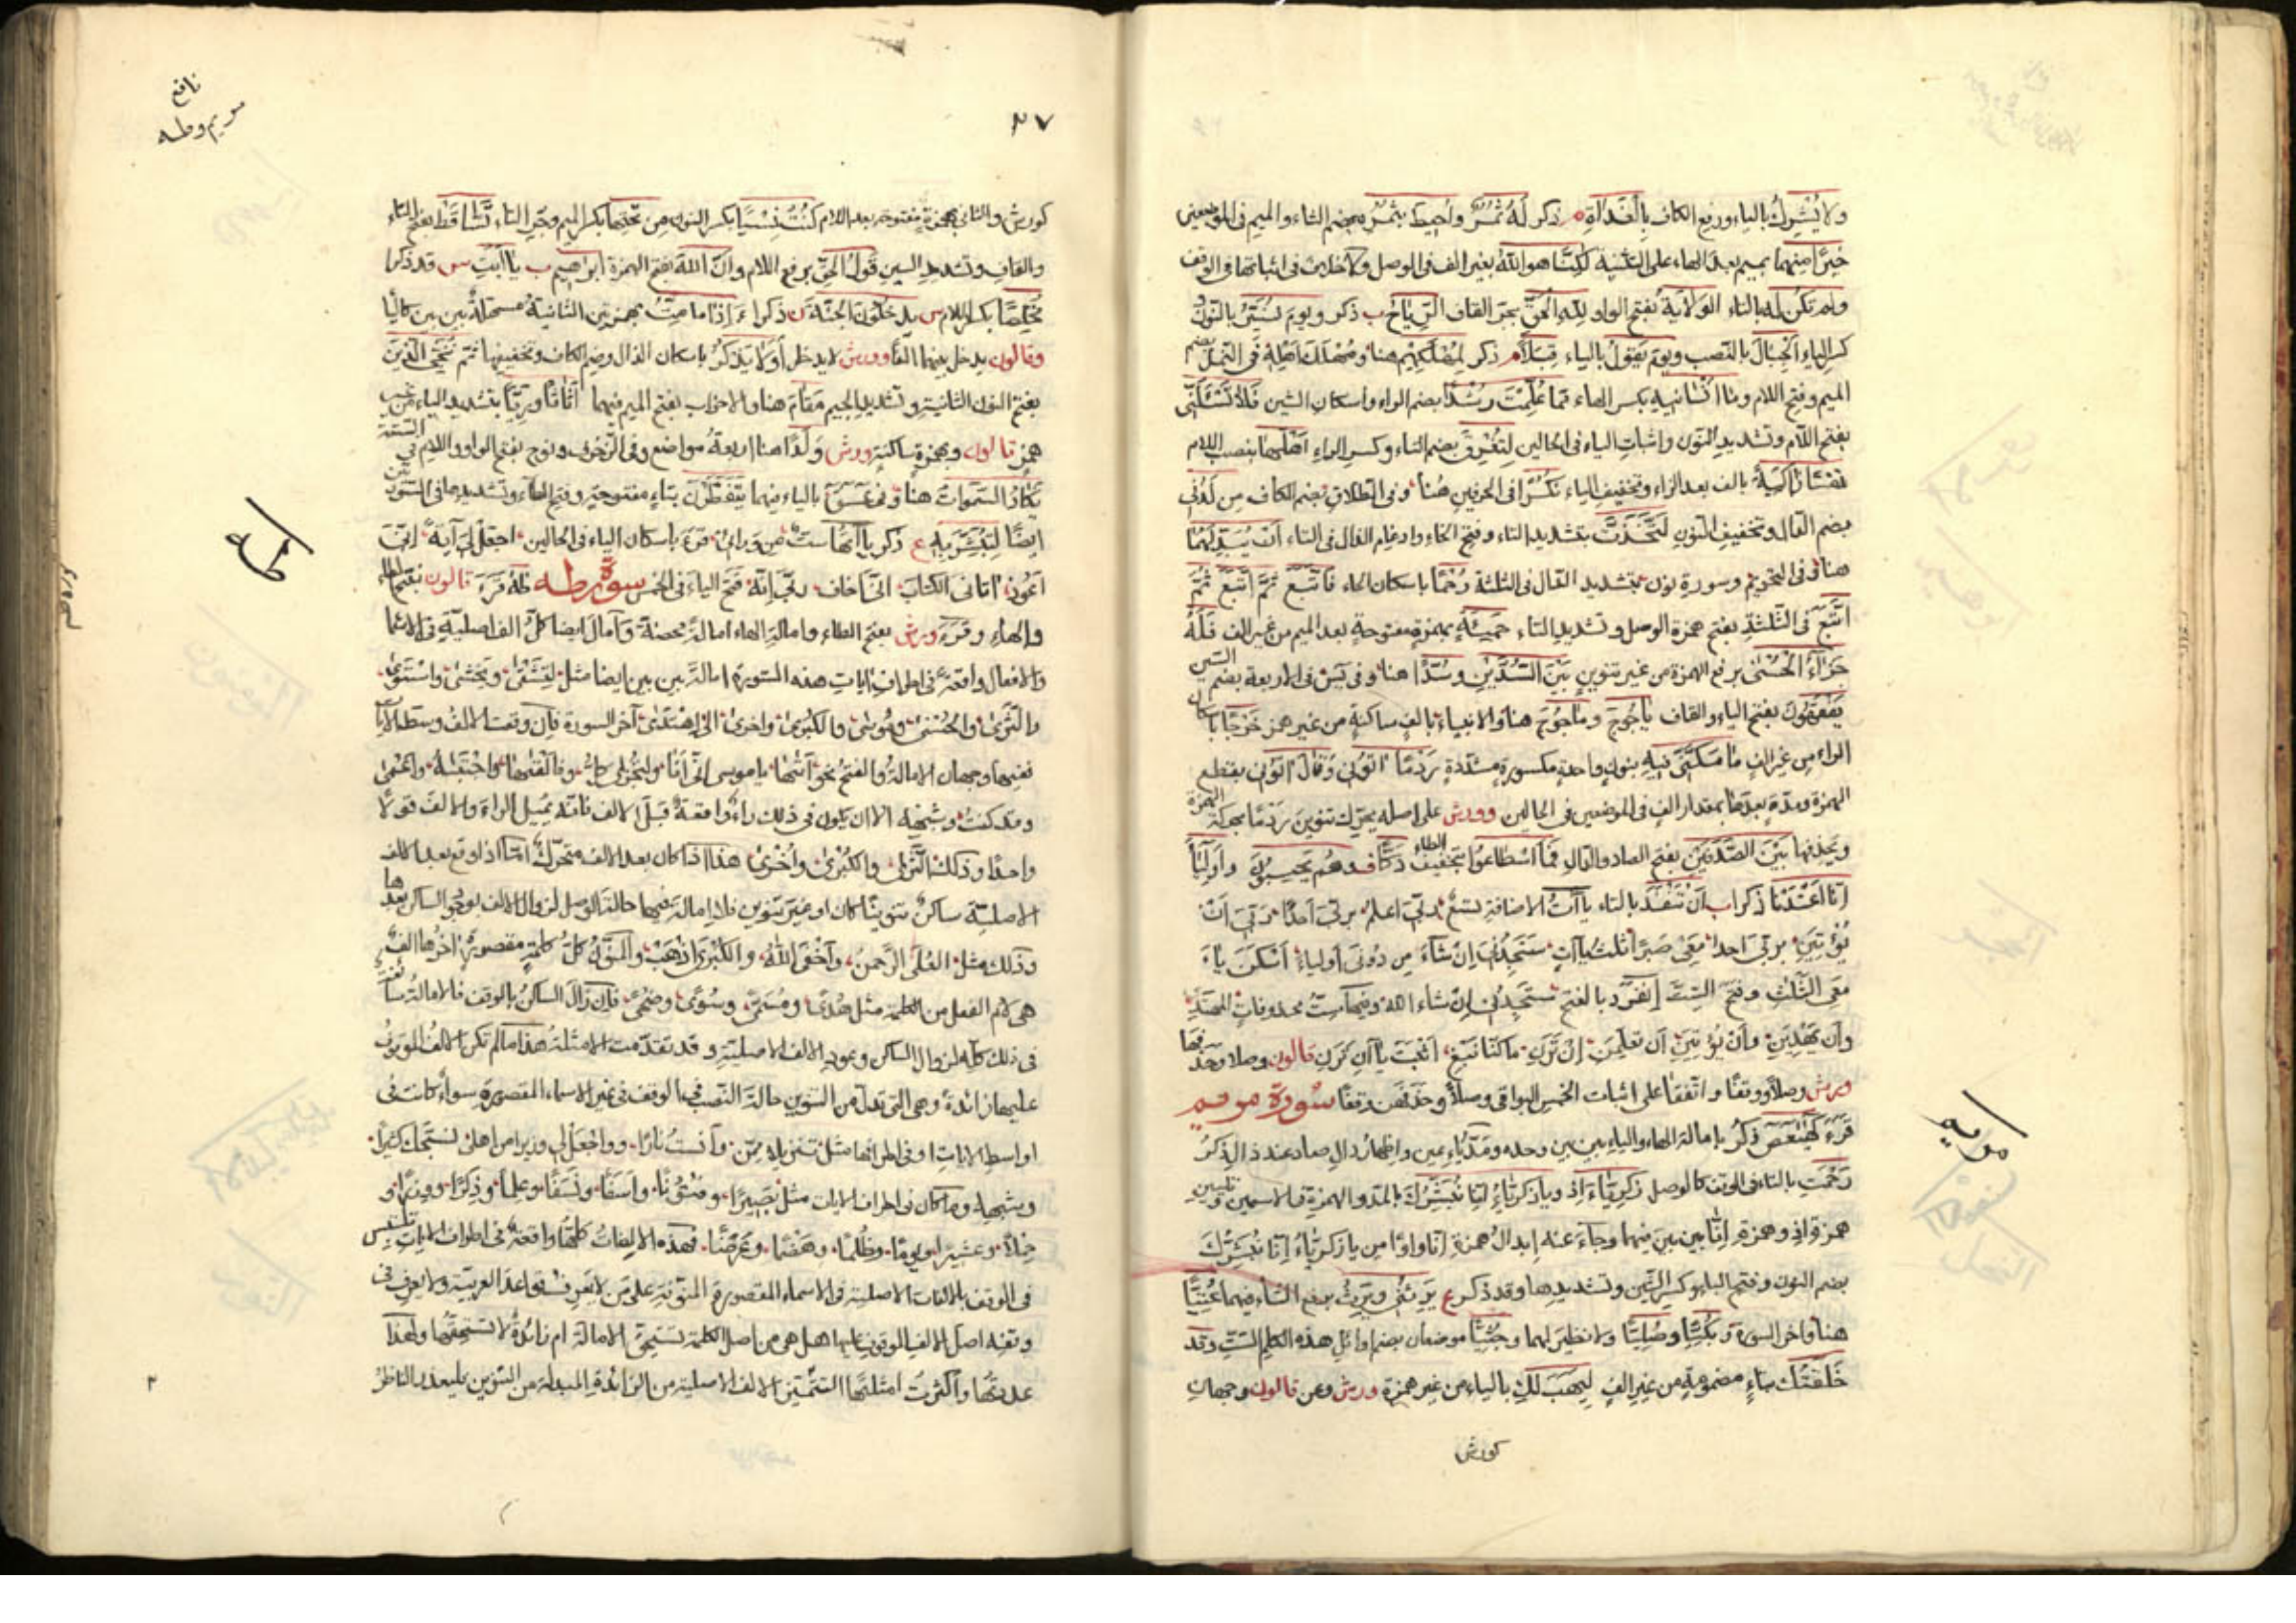 ولا يُشْرِكُ بالياء ورفع الكاف بِالْغَدَاةِ م ذكر لَهُ ثُمُرٌ وأُحِيطَ بِثُمُرِهِ بضم الثاء والميم في الموضعين
خَيْرًا مِنْهُمَا بميم بعد الهاء على التثنية لٰكِنَّا هو اللّٰهُ بغير الف في الوصل ولا خلاف في اثباتها في الوقف
ولم تكُن لَه بالتاء الوَلَايَةُ بفتح الواو لِلّٰهِ الْحَقِّ بجر القاف الرِّيَاحُ ب ذكر ويوم نُسَيِّرُ بالنون و
كسر الياء الْجِبَالَ بالنصب ويوم يَقُولُ بالياء قِبَلًا م ذكر لِمُهْلَكِهِمْ هنا ومُهْلَكَ أَهْلِهِ في النمل بضم
الميم وفتح اللام وما أَنْسَانِيهِ بكسر الهاء مما عُلِّمْتَ رُشْدًا بضم الراء واسكان الشين فَلَا تَسْئَلَنِّي
بفتح اللام وتشديد النون واثبات الياء في الحالين لِتُغْرِقَ بضم التاء وكسر الراء أَهْلَهَا بنصب اللام
نَفْسًا زَاكِيَةً بالف بعد الزاء وتخفيف الياء نُكُرًا في الحرفين هُنا وفي الطلاق بضم الكاف مِن لَدُنِي
بضم الدال وتخفيف النون لَتَّخَذْتَ بتشديد التاء وفتح الخاء وادغام الذال في التاء أَنْ يُبَدِّلَهُمَا
هنا وفي التحريم وسورة نون بتشديد الدال في الثلثة رُحْمًا باسكان الحاء فَاتَّبَعَ ثُمَّ اتَّبَعَ ثُمَّ
اتَّبَعَ في الثلثة بفتح همزة الوصل وتشديد التاء حَمِئَةٍ بهمزة مفتوحة بعد الميم من غير الف فَلَهُ
جَزَاءُ الْحُسْنٰى برفع الهمزة من غير تنوين بَيْنَ السُّدَّيْنِ وسُدًّا هنا وفي يٰسٓ في الاربعة بضم السين
يَفْقَهُونَ بفتح الياء والقاف يَاجُوجَ ومَاجُوجَ هنا والانبياء بالف ساكنة من غير همز خَرْجًا باسكان
الراء من غير الف مَا مَكَّنِّي فِيهِ بنون واحدة مكسورة مشددة رَدْمًا آتُونِي وقَالَ آتُونِي بقطع
الهمزة ومدة بعدها بمقدار الف في الموضعين في الحالين وورش على اصله يحرّك تنوين رَدْمًا بحركة الهمزة
ويحذفها بَيْنَ الصَّدَفَيْنِ بفتح الصاد والدال فَمَا اسْطَاعُوا بتخفيف الطاء دَكًّا ف وهم يَحْسِبُونَ و أَوْلِيَاءَ
إِنَّا أَعْتَدْنَا ذكرا ب أَنْ تَنْفَدَ بالتاء ياآت الاضافة تسعٌ رَبِّي أعلم بِرَبِّي أَحَدًا رَبِّيَ أَنْ
يُؤْتِيَنِ بِرَبِّي أَحَدًا مَعِيَ صَبْرًا ثلث ياآتٍ سَتَجِدُنِي إِنْ شَاءَ مِنْ دُونِيَ أَوْلِيَاءَ أسكن ياءَ
مَعِي الثلث وفتح الستّ إنفرد بالفتح سَتَجِدُنِيَ إن شاء الله وفيها ستُّ محذوفاتٍ المهتدِ
وأن يهْدِيَنِ وأن يُؤْتِيَنِ أن تعلمنِ إن تَرَنِ ما كنّا نبغِ أثبت ياأنِ تَرَنِ قالون وصلا وحذفها
ورش وصلًا ووقفًا واتفقا على اثبات الخمس البواقي وصلًا وحذفهنّ وقفًا سورة مريم
قَرَءَ كٓهيٰعٓصٓ ذِكْرُ بإمالة الهاء والياء بين بين وحده ومَدّ ياءِ عين واظهار دال صاد عند ذال ذِكْرُ
رَحْمَتِ بالتاء في الوقف كالوصل زَكَرِيَّاءَ إِذ ويا زكرِيَّاءُ إِنَّا نُبَشِّرُكَ بالمد والهمزة في الاسمين وتليين
همزة إذ وهمزة إِنَّا بين بين فيهما وجاءَ عنه إبدالُ همزةِ إِنَّا واوًا من يا زكرِيَّاءُ إِنَّا نُبَشِّرُكَ
بضم النون وفتح الباء وكسر الشين وتشديدها وقد ذكر ع يَرِثُنِي ويَرِثُ برفع الثاء فيهما عُتِيًّا
هنا واخر السورة و بُكِيًّا وصُلِيًّا ولا نظير لهما وجُثِيًّا موضعان بضم اوائل هذه الكلم الستّ وقد
خَلَقْتُكَ بتاءٍ مضمومةٍ من غير الف لِيَهَبَ لَكِ بالياء من غير همزة ورش وعن قالون وجهان
كورش
مريم
نافع
مريم وطه
٣٧
كورش والثاني بهمزة مفتوحة بعد اللام كُنْتُ نِسْيًا بكسر النون مِن تَحْتِهَا بكسر الميم وجر التاء تَسَّاقَطْ بفتح التاء
والقاف وتشديد السين قَوْلُ الْحَقِّ برفع اللام وأَنَّ اللّٰهَ بفتح الهمزة ابراهيم ب يا أَبَتِ س قد ذكرا
مُخْلِصًا بكسر اللام س يدخلون الجنّة ن ذكرا ءَإِذَا ما مِتُّ بهمزتين الثانية مسهلةٌ بين بين كالياء
وقالون يدخل بينهما الفًا وورش لا يدخل أَوَلَا يَذْكُرُ باسكان الذال وضم الكاف وتخفيفها ثُمَّ نُنَجِّي الَّذِينَ
بفتح النون الثانية وتشديد الجيم مَقَام هنا والاحزاب بفتح الميم فيهما أَثَاثًا ورِيًّا بتشديد الياء من غير
همز قالون وبهمزة ساكنة ورش وَلَدًا هنا اربعةُ مواضع وفي الزخرف ونوح بفتح الواو واللام في الستة
يَكَادُ السَّمٰوَاتُ هنا وفي عٓسٓقٓ بالياء فيهما يَتَفَطَّرْنَ بتاءٍ مفتوحةٍ وفتح الطاء وتشديدها في السورتين
ايضًا لِتُبَشِّرَ بِهِ ع ذكر ياآتها ستٌّ مِن وَرَائِي قَرَءَ باسكان الياء في الحالين اجْعَلْ لِيَ آيَةً إِنِّيَ
أَعُوذُ آتَانِيَ الكتابَ إِنِّيَ أَخَافُ رَبِّيَ إِنَّهُ فتح الياءَ في الخمس سورة طه طٰهٰ قَرَءَ قالون بفتح الطاء
والهاء وقرء ورش بفتح الطاء وامالة الهاء امالةً محضةً وأمال ايضا كلَّ الف اصليةٍ في الاسماء
والافعال واقعةٌ في اطراف ايات هذه السورة امالة بين بين ايضا مثل لِتَشْقٰى ويَخْشٰى واسْتَوٰى
والثَّرٰى والحُسْنٰى ومُوسٰى والكُبْرٰى وأُخْرٰى الى اهْتَدٰى آخر السورة فإن وقعت الالفُ وسط الآيات
ففيها وجهان الامالةُ والفتحُ نحو أَتٰىهَا يا موسى إِنِّي أَنَا ولِتُجْزٰى كلُّ وفَأَلْقٰىهَا واجْتَبٰىهُ وأَعْمٰى
وقد كنتُ وشبهه الا ان يكون في ذلك راءٌ واقعةٌ قبل الالف فانه يُميل الراءَ والالفَ قولًا
واحدًا وذلك الثَّرٰى والكُبْرٰى وأُخْرٰى هذا اذا كان بعد الالف متحرّكٌ امّا اذا وقع بعد الالف
الاصلية ساكنٌ تنوينًا كان او غيرَ تنوين فلا إمالةَ فيها حالةَ الوصل لزوال الالف لوجود الساكن بعدها
وذلك مثل العُلَى الرَّحمنُ وأخْفَى اللهُ والكُبْرَى اذْهَبْ والمنوّنُ كلُّ كلمةٍ مقصورةٍ اخرُها الفٌ
هي لام الفعل من الكلمة مثل هُدًى ومُسَمًّى وسُوًى وضُحًى فإن زالَ الساكنُ بالوقف فالامالةُ سائغةٌ
في ذلك كلّه لزوال الساكن وعودِ الالف الاصلية وقد تقدّمت الامثلةُ هذا ما لم تكن الالفُ الموقوفُ
عليها زائدةً وهي التي تبدل من التنوين حالةَ النصب في الوقف في غير الاسماء المقصورة سواءٌ كانت في
اواسط الايات او في اطرافها مثل تنزيلا ممّن وآنستُ نارًا وواجعل لي وزيرا من اهلي نسبّحك كثيرًا
وشبهها وما كان في اطراف الايات مثل بَصِيرًا وفُتُونًا وأَسِفًا ونَسْفًا وعِلْمًا وذِكْرًا ووِزْرًا و
حِمْلًا وعشرًا ويومًا وظُلْمًا وهَضْمًا وعَزْمًا فهذه الالفاتُ كلُّها واقعةٌ في اطراف الايات تلتبس
في الوقف بالالفات الاصلية في الاسماء المقصورة المنوّنة على مَن لا يَعرفُ قواعدَ العربيّة ولا يعرف في
وقفه اصل الالف الموقوف عليها هل هي من اصل الكلمة تستحق الامالة ام زائدةٌ لا تستحقّها ولهذا
عددتُها وأكثرتُ امثلتَها لتتميّز الالف الاصلية من الزائدة المبدلة من التنوين فليعذر الناظرُ
طه